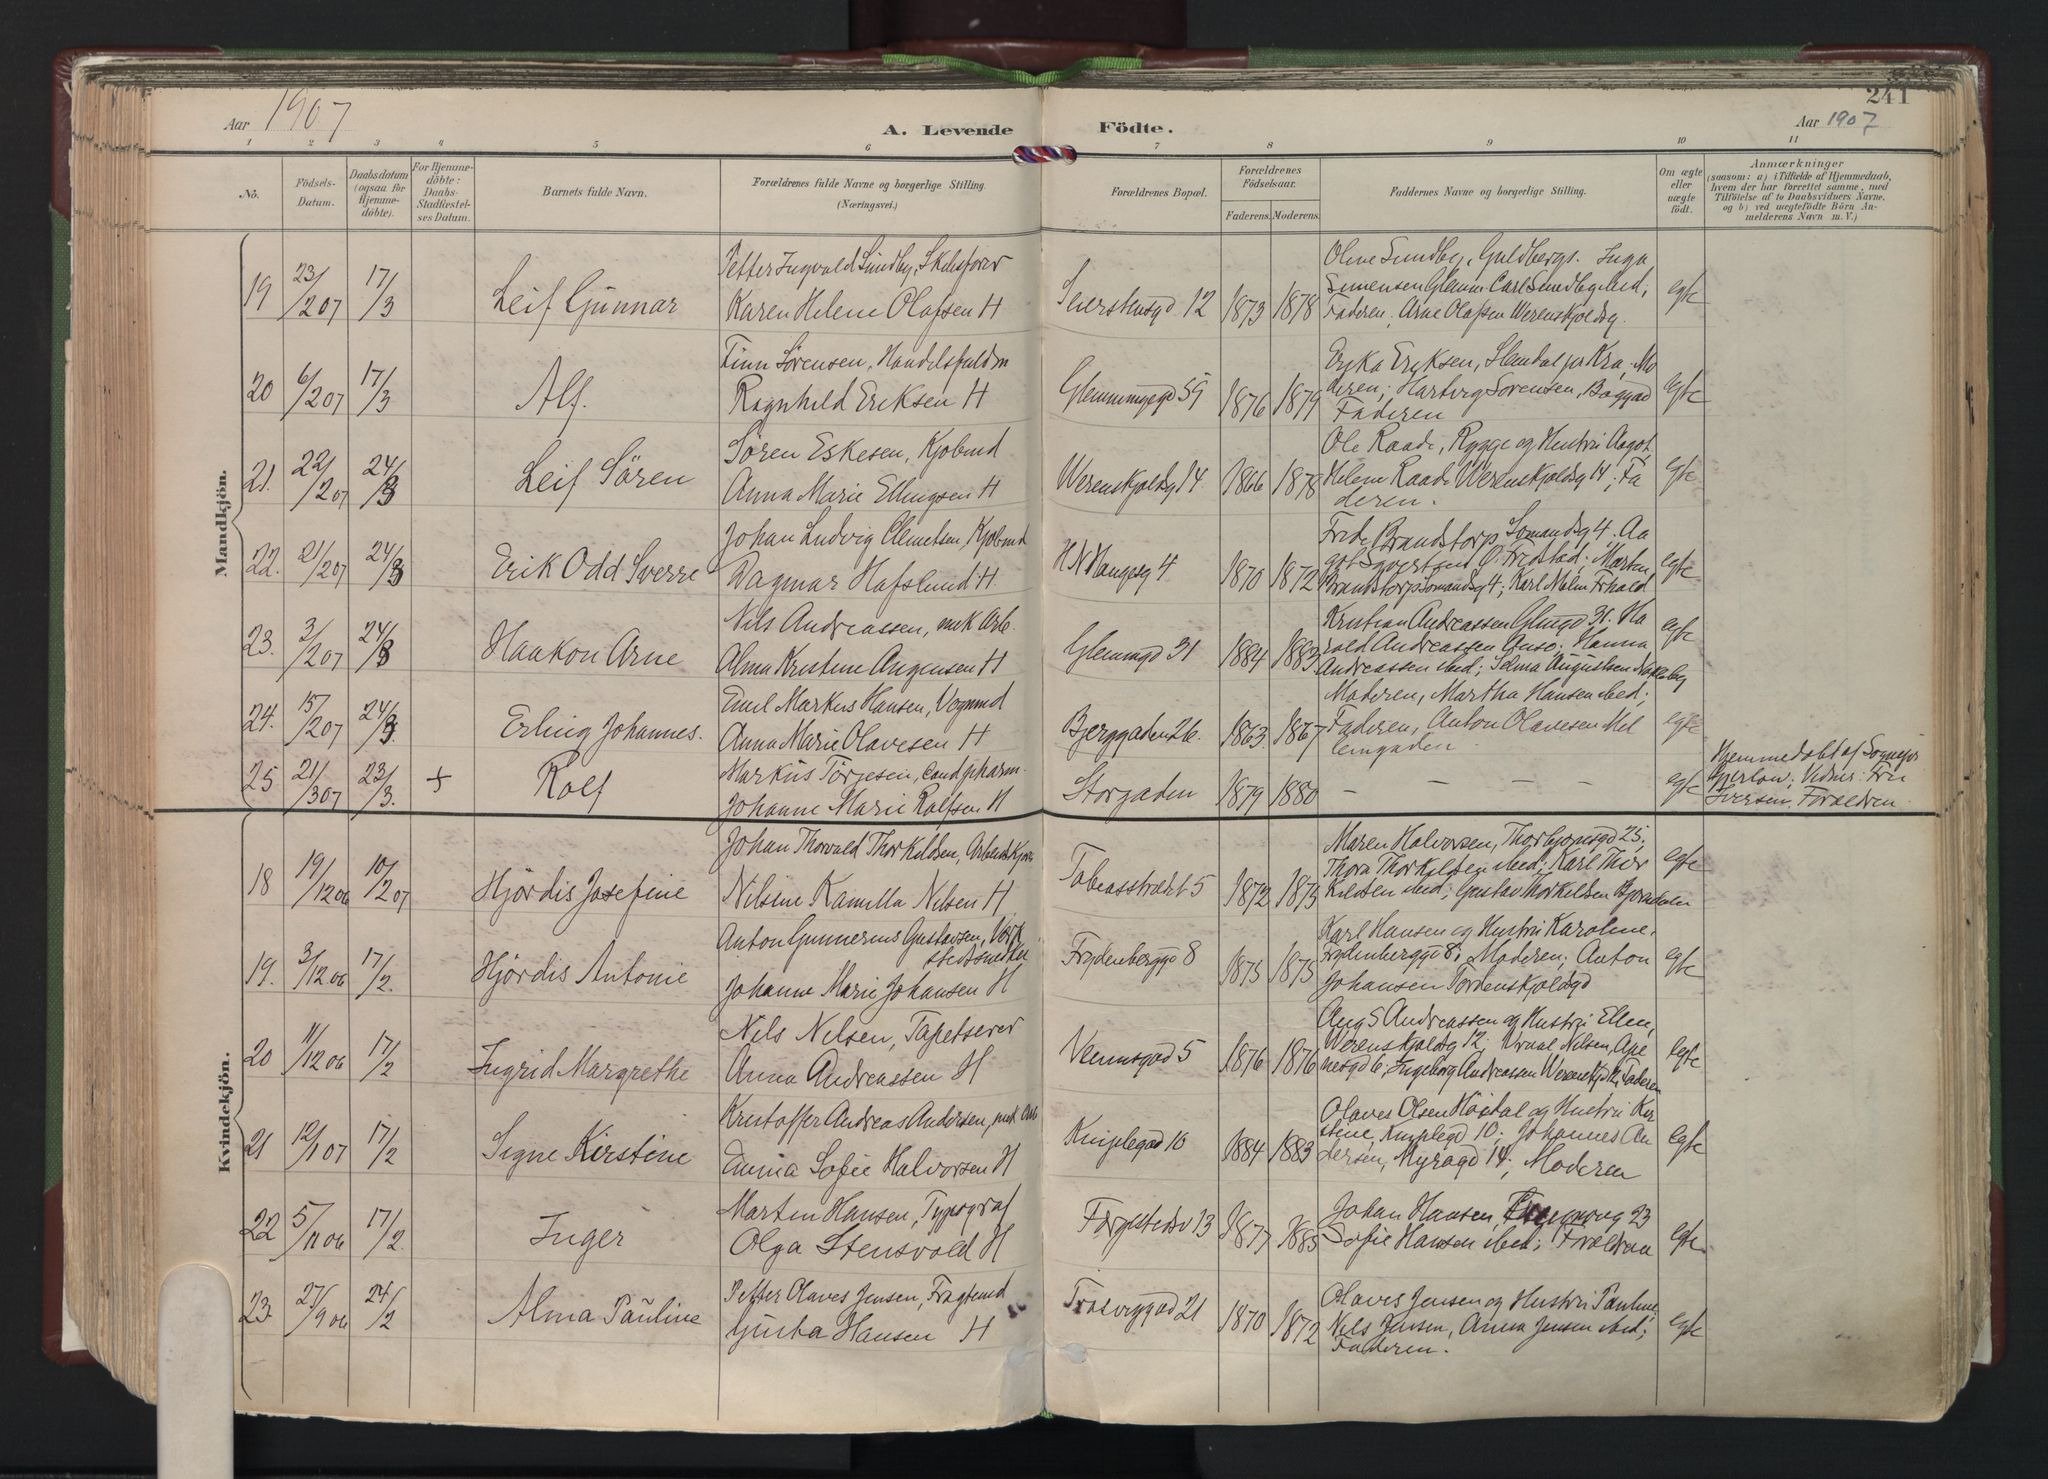 241
Aar 1907
A. Levende Födte.
Aar 1907
1 2 3 4 5 6 7 8 9 10 11
No.
Födsels-Datum.
Daabsdatum (ogsaa for Hjemmedöbte).
For Hjemmedöbte: Daabs-Stadfæstelses Datum.
Barnets fulde Navn.
Forældrenes fulde Navne og borgerlige Stilling. (Næringsvei.)
Forældrenes Bopæl.
Forældrenes Födselsaar.
Faderens. Moderens.
Faddernes Navne og borgerlige Stilling.
Om ægte eller uægte födt.
Anmærkninger
(saasom: a) i Tilfælde af Hjemmedaab, hvem der har forrettet samme, med Tilföielse af to Daabsvidners Navne, og b) ved uægtefödte Börn Anmelderens Navn m. V.)
Mandkjön.
19 23/2 07 17/3 Leif Gunnar
Petter Ingvald Sundby, Skibsfører
Karen Helene Olafsen H
Seierstensgd 12 1873 1878
Oline Sundby, Guldbergs. Inga
Simensen Glemm. Carl Sundby ibid;
Faderen; Arne Olafsen Werenskjoldsg.
egte
20 6/2 07 17/3 Alf.
Finn Sørensen, Handelsfuldm
Ragnhild Eriksen H
Glemmingegd 59 1876 1879
Erika Eriksen, Slemdal pr Kra, Mo
deren; Hartvig Sørensen, Baggad
Faderen
egte
21. 22/2 07 24/3 Leif Sören
Sören Eskesen, Kjøbmd
Anna Marie Ellingsen H
Werenskjoldsg 14 1866 1878
Ole Raade, Rygge og Hustru Aagot
Helene Raade Werenskjoldsg 14; Fa
deren.
egte
22. 21/2 07 24/3 Erik Odd Sverre
Johan Ludvig Clemetsen, Kjøbmd
Dagmar Hafslund H
H N Haugesg 4 1870 1872
Frida Brandstorp Somandsg 4. Aa
got Syvertsen Ø. Fredstad; Marten
Brandstorp Somandsg 4; Karl Malm Frhald
egte
23. 3/2 07 24/3 Haakon Arne
Nils Andreassen, mek Arb.
Alma Kristine Jørgensen H
Glemmgd 31 1884 1883
Kristian Andreassen Glmgd 31. Ha
rald Andreassen Onsø; Hanna
Andreassen ibid; Selma Augustsen Nabbeby
egte
24. 15/2 07 24/3 Erling Johannes.
Emil Markus Hansen, Vognmd
Anna Marie Olavesen H
Bjerggaden 26. 1863 1867
Moderen, Martha Hansen ibid;
Faderen, Anton Olavesen Mel
lemgaden
egte
25 21/3 07 23/3. + Rolf
Markus Törgesen, Cand pharm.
Johanne Marie Rolfsen H
Storgaden 1879 1880 — — — —
egte
Hjemmedøbt af Sognepr
Gjerløw. Vidner: Fru
Iversen. Forældren
Kvindekjön.
18 19/12 06 10/2 07 Hjördis Josefine
Johan Thorvald Thorkildsen, Arbeidskjører
Nilsine Kamilla Nilsen H
Tobiasstrædet 5 1872 1873
Maren Halvorsen, Thorbjørnsgd 25;
Thora Thorkildsen ibid; Karl Thor
kildsen ibid; Gustav Thorkildsen Bjørndalen
egte
19. 3/12 06 17/2. Hjördis Antonie
Anton Gunnerius Gustavsen, Værk
stedsarbei
Johanne Marie Johansen H
Frydenberggd 8 1875 1875
Karl Hansen og Hustru Karoline,
Frydenberggd 8; Moderen; Anton
Johansen Tordenskjoldsgd
egte
20 11/12 06 17/2 Ingrid Margrethe
Nils Nilsen, Tapetserer
Anna Andreassen H
Vennsgad 5 1876 1876
Aug S Andreassen og Hustru Ellen,
Werenskjoldsg 12; Vraal Nilsen, Ape
nesgd 6; Ingeborg Andreassen Werenskjd 12; Faderen
egte
21 12/1 07 17/2 Signe Kirstine
Kristoffer Andreas Andersen, mek Arb
Emma Sofie Halvorsen H
Kniplegad 10 1884 1883
Olaves Olsen Høidal og Hustru Kir
stine, Kniplegd 10; Johannes An
dersen, Myragd 14; Moderen
egte
22 5/11 06 17/2. Inger
Marten Hansen, Typograf
Olga Stensvold H
Færgestedsv 13 1877 1885
Johan Hansen, 23
Sofie Hansen ibid; Forældren
egte.
23. 27/9 06 24/2 Alma Pauline
Petter Olaves Jensen, Fragtemd
Gusta Hansen H
Trosviggad 21 1870 1872
Olaves Jensen og Hustru Pauline,
Nils Jensen, Anna Jensen ibid;
Faderen.
egte